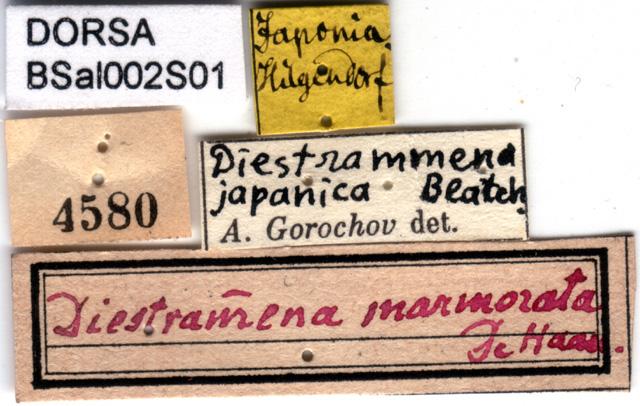 DORSA
BSal002S01
Japonia.
Hilgendorf
4580
Diestrammena
japanica Blatch.
A. Gorochov det.
Diestram̅ena marmorata
De Haan.